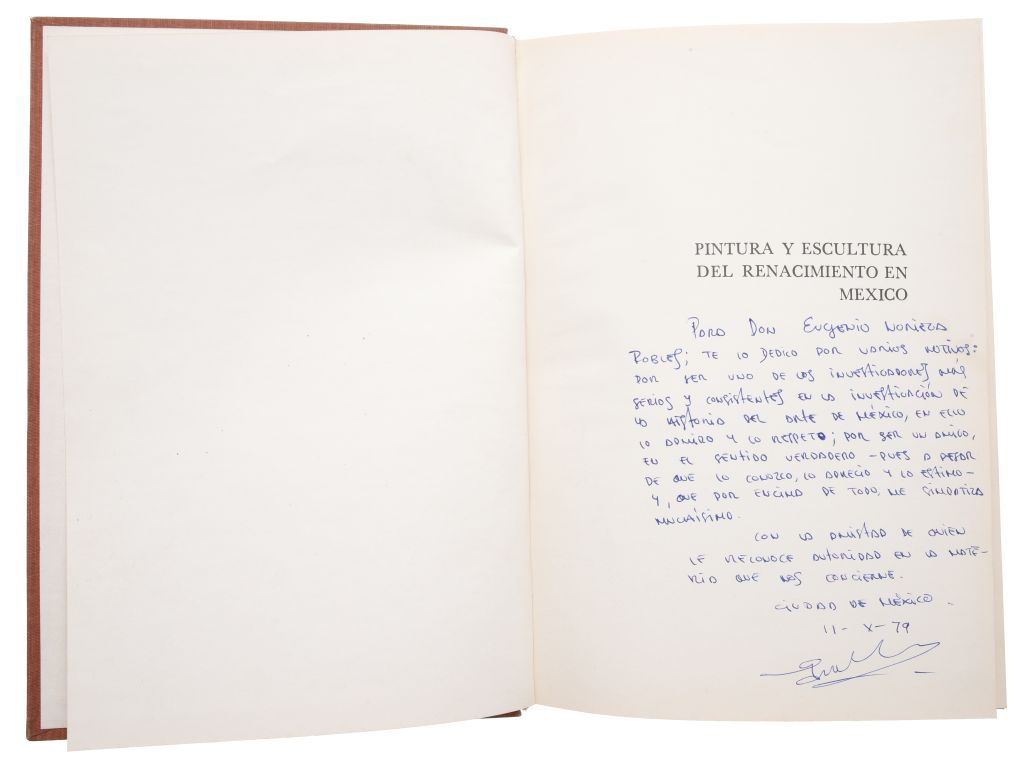 PINTURA Y ESCULTURA
DEL RENACIMIENTO EN
MEXICO
Para Don Eugenio Noriega
Robles; te lo dedico por varios motivos:
por ser uno de los investigadores más
serios y consistentes en la investigación de
la historia del arte de México, en ello
lo admiro y lo respeto; por ser un amigo,
en el sentido verdadero - pues a pesar
de que lo conozco, lo aprecio y lo estimo -
y, que por encima de todo, me simpatiza
muchísimo.
Con la amistad de quien
le reconoce autoridad en la mate-
ria que nos concierne.
Ciudad de México.
11-X-79